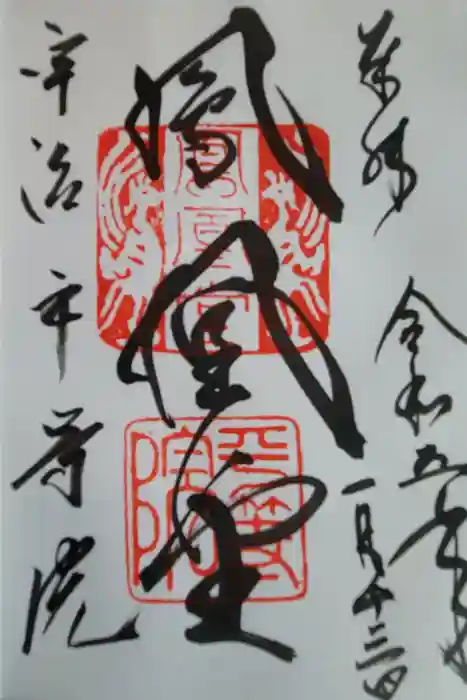 奉拝
令和五年
一月十三日
鳳凰堂
宇治平等院
鳳凰堂
平等院